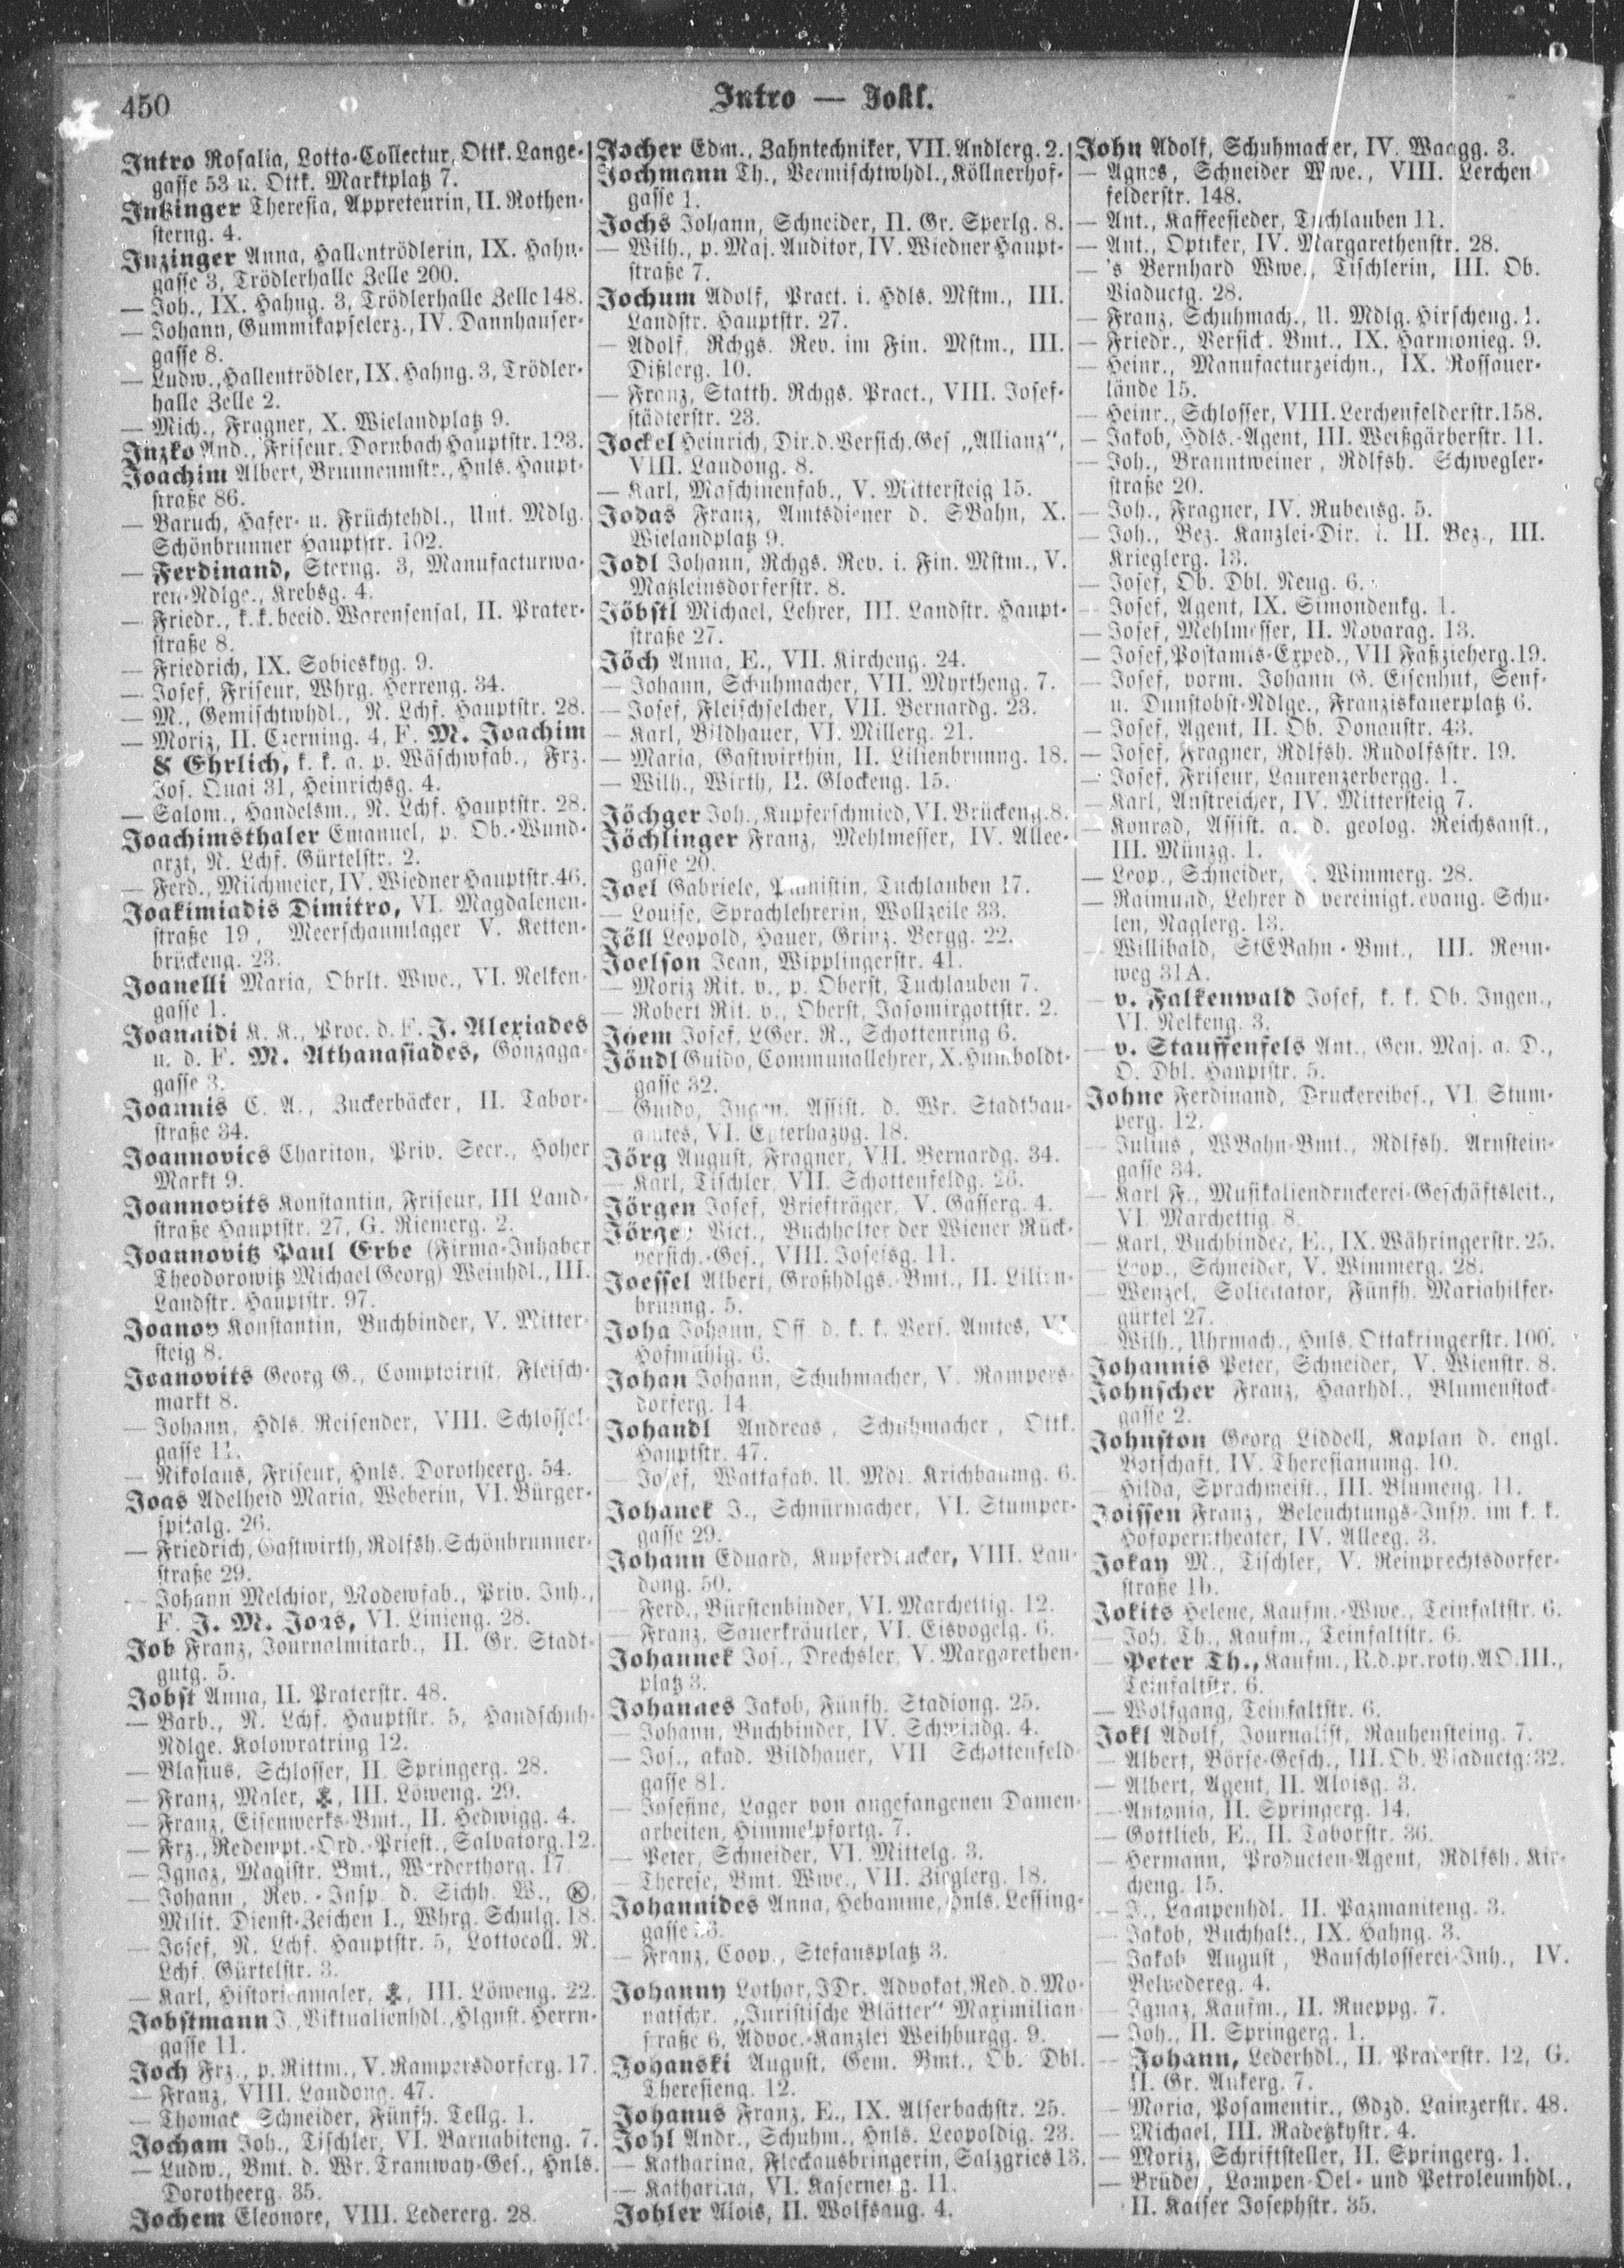 450
Intro — Jokl.
Intro Rosalia, Lotto-Collectur, Ottk. Lange-
gasse 53 u. Ottk. Marktplatz 7.
Intzinger Theresia, Appreteurin, II. Rothen-
sterng. 4.
Inzinger Anna, Hallentrödlerin, IX. Hahn-
gasse 3, Trödlerhalle Zelle 200.
— Joh., IX. Hahng. 3, Trödlerhalle Zelle 148.
— Johann, Gummikapselerz., IV. Dannhauser-
gasse 8.
— Ludw., Hallentrödler, IX. Hahng. 3, Trödler-
halle Zelle 2.
— Mich., Fragner, X. Wielandplatz 9.
Inzko And., Friseur, Dornbach Hauptstr. 123.
Joachim Albert, Brunnenmstr., Hnls. Haupt-
straße 86.
— Baruch, Hafer- u. Früchtehdl., Unt. Mdlg.
Schönbrunner Hauptstr. 102.
— Ferdinand, Sterng. 3, Manufacturwa-
ren-Ndlge., Krebsg. 4.
— Friedr., k. k. beeid. Warensensal, II. Prater-
straße 8.
— Friedrich, IX. Sobieskyg. 9.
— Josef, Friseur, Whrg. Herreng. 34.
— M., Gemischtwhdl., N. Lchf. Hauptstr. 28.
— Moriz, II. Czerning. 4, F. M. Joachim
& Ehrlich, k. k. a. p. Wäschwfab., Frz.
Jos. Quai 31, Heinrichsg. 4.
— Salom., Handelsm., N. Lchf. Hauptstr. 28.
Joachimsthaler Emanuel, p. Ob.-Wund-
arzt, N. Lchf. Gürtelstr. 2.
— Ferd., Milchmeier, IV. Wiedner Hauptstr. 46.
Joakimiadis Dimitro, VI. Magdalenen-
straße 19, Meerschaumlager V. Ketten-
brückeng. 23.
Joanelli Maria, Obrlt. Wwe., VI. Nelken-
gasse 1.
Joannidi K. K., Proc. d. F. J. Alexiades
u. d. F. M. Athanasiades, Gonzaga-
gasse 3.
Joannis C. A., Zuckerbäcker, II. Tabor-
straße 34.
Joannovics Chariton, Priv. Secr., Hoher
Markt 9.
Joannovits Konstantin, Friseur, III Land-
straße Hauptstr. 27, G. Riemerg. 2.
Joannovitz Paul Erbe (Firma-Inhaber
Theodorowitz Michael Georg) Weinhdl., III.
Landstr. Hauptstr. 97.
Joanov Konstantin, Buchbinder, V. Mitter-
steig 8.
Joanovits Georg G., Comptoirist, Fleisch-
markt 8.
— Johann, Hdls. Reisender, VIII. Schlössel-
gasse 11.
— Nikolaus, Friseur, Hnls. Dorotheerg. 54.
Joas Adelheid Maria, Weberin, VI. Bürger-
spitalg. 26.
— Friedrich, Gastwirth, Rdlfsh. Schönbrunner-
straße 29.
— Johann Melchior, Modewfab., Priv. Inh.,
F. J. M. Joas, VI. Linieng. 28.
Job Franz, Journalmitarb., II. Gr. Stadt-
gutg. 5.
Jobst Anna, II. Praterstr. 48.
— Barb., N. Lchf. Hauptstr. 5, Handschuh-
Ndlge. Kolowratring 12.
— Blasius, Schlosser, II. Springerg. 28.
— Franz, Maler, III. Löweng. 29.
— Franz, Eisenwerks-Bmt., II. Hedwigg. 4.
— Frz., Redempt.-Ord.-Priest., Salvatorg. 12.
— Ignaz, Magistr. Bmt., Werderthorg. 17.
— Johann, Rev.-Insp. d. Sichh. W.,
Milit. Dienst-Zeichen I., Whrg. Schulg. 18.
— Josef, N. Lchf. Hauptstr. 5, Lottocoll. N.
Lchf. Gürtelstr. 3.
— Karl, Historienmaler, III. Löweng. 22.
Jobstmann J., Viktualienhdl., Hlgnst. Herrn-
gasse 11.
Joch Frz., p. Rittm., V. Rampersdorferg. 17.
— Franz, VIII. Laudong. 47.
— Thomas, Schneider, Fünfh. Tellg. 1.
Jocham Joh., Tischler, VI. Barnabiteng. 7.
— Ludw., Bmt. d. Wr. Tramway-Ges., Hnls.
Dorotheerg. 35.
Jochem Eleonore, VIII. Ledererg. 28.
Jocher Edm., Zahntechniker, VII. Andlerg. 2.
Jochmann Th., Vermischtwhdl., Köllnerhof-
gasse 1.
Jochs Johann, Schneider, II. Gr. Sperlg. 8.
— Wilh., p. Maj. Auditor, IV. Wiedner Haupt-
straße 7.
Jochum Adolf, Pract. i. Hdls. Mstm., III.
Landstr. Hauptstr. 27.
— Adolf, Rchgs. Rev. im Fin. Mstm., III.
Dißlerg. 10.
— Franz, Statth. Rchgs. Pract., VIII. Josef-
städterstr. 23.
Jockel Heinrich, Dir. d. Versich. Ges „Allianz“,
VIII. Laudong. 8.
— Karl, Maschinenfab., V. Mittersteig 15.
Jodas Franz, Amtsdiener d. SBahn, X.
Wielandplatz 9.
Jodl Johann, Rchgs. Rev. i. Fin. Mstm., V.
Matzleinsdorferstr. 8.
Jöbstl Michael, Lehrer, III. Landstr. Haupt-
straße 27.
Jöch Anna, E., VII. Kircheng. 24.
— Johann, Schuhmacher, VII. Myrtheng. 7.
— Josef, Fleischselcher, VII. Bernardg. 23.
— Karl, Bildhauer, VI. Millerg. 21.
— Maria, Gastwirthin, II. Lilienbrunng. 18.
— Wilh., Wirth, II. Glockeng. 15.
Jöchger Joh., Kupferschmied, VI. Brückeng. 8.
Jöchlinger Franz, Mehlmesser, IV. Allee-
gasse 20.
Joel Gabriele, Pianistin, Tuchlauben 17.
— Louise, Sprachlehrerin, Wollzeile 33.
Jöll Leopold, Hauer, Grinz. Bergg. 22.
Joelson Jean, Wipplingerstr. 41.
— Moriz Rit. v., p. Oberst, Tuchlauben 7.
— Robert Rit. v., Oberst, Jasomirgottstr. 2.
Joem Josef, LGer. R., Schottenring 6.
Jöndl Guido, Communallehrer, X. Humboldt-
gasse 32.
— Guido, Ingen. Assist. d. Wr. Stadtbau-
amtes, VI. Esterhazyg. 18.
Jörg August, Fragner, VII. Bernardg. 34.
— Karl, Tischler, VII. Schottenfeldg. 26.
Jörgen Josef, Briefträger, V. Gasserg. 4.
Jörger Vict., Buchhalter der Wiener Rück-
versich.-Ges., VIII. Josefsg. 11.
Joessel Albert, Großhdlgs.-Bmt., II. Lilien-
brunng. 5.
Joha Johann, Off. d. k. k. Vers. Amtes, VI.
Hofmühlg. 6.
Johan Johann, Schuhmacher, V. Rampers-
dorferg. 14.
Johandl Andreas, Schuhmacher, Ottk.
Hauptstr. 47.
— Josef, Wattafab. U. Mdl. Krichbaumg. 6.
Johanek J., Schnürmacher, VI. Stumper-
gasse 29.
Johann Eduard, Kupferdrucker, VIII. Lau-
dong. 50.
— Ferd., Bürstenbinder, VI. Marchettig. 12.
— Franz, Sauerkräutler, VI. Eisvogelg. 6.
Johannek Jos., Drechsler, V. Margarethen-
platz 3.
Johannes Jakob, Fünfh. Stadiong. 25.
— Johann, Buchbinder, IV. Schwindg. 4.
— Jos., akad. Bildhauer, VII Schottenfeld-
gasse 81.
— Josefine, Lager von angefangenen Damen-
arbeiten, Himmelpfortg. 7.
— Peter, Schneider, VI. Mittelg. 3.
— Therese, Bmt. Wwe., VII. Zieglerg. 18.
Johannides Anna, Hebamme, Hnls. Lessing-
gasse
— Franz, Coop., Stefansplatz 3.
Johanny Lothar, JDr. Advokat, Red. d. Mo-
natschr. „Juristische Blätter“ Maximilian-
straße 6, Advoc.-Kanzlei Weihburgg. 9.
Johanski August, Gem. Bmt., Ob. Dbl.
Theresieng. 12.
Johanus Franz, E., IX. Alserbachstr. 25.
Johl Andr., Schuhm., Hnls. Leopoldig. 23.
— Katharina, Fleckausbringerin, Salzgries 13.
— Katharina, VI. Kaserneng. 11.
Johler Alois, II. Wolfsaug. 4.
John Adolf, Schuhmacher, IV. Waagg. 3.
— Agnes, Schneider Wwe., VIII. Lerchen
felderstr. 148.
— Ant., Kaffeesieder, Tuchlauben 11.
— Ant., Optiker, IV. Margarethenstr. 28.
— 's Bernhard Wwe., Tischlerin, III. Ob.
Viaductg. 28.
— Franz, Schuhmach., U. Mdlg. Hirscheng. 1.
— Friedr., Versich. Bmt., IX. Harmonieg. 9.
— Heinr., Manufacturzeichn., IX. Rossauer-
lände 15.
— Heinr., Schlosser, VIII. Lerchenfelderstr. 158.
— Jakob, Hdls.-Agent, III. Weißgärberstr. 11.
— Joh., Branntweiner, Rdlfsh. Schwegler-
straße 20.
— Joh., Fragner, IV. Rubensg. 5.
— Joh., Bez. Kanzlei-Dir. i. II. Bez., III.
Krieglerg. 13.
— Josef, Ob. Dbl. Neug. 6.
— Josef, Agent, IX. Simondenkg. 1.
— Josef, Mehlmesser, II. Novarag. 13.
— Josef, Postamts-Exped., VII Faßzieherg. 19.
— Josef, vorm. Johann G. Eisenhut, Senf-
u. Dunstobst-Ndlge., Franziskanerplatz 6.
— Josef, Agent, II. Ob. Donaustr. 43.
— Josef, Fragner, Rdlfsh. Rudolfsstr. 19.
— Josef, Friseur, Laurenzerbergg. 1.
— Karl, Anstreicher, IV. Mittersteig 7.
— Konrad, Assist. a. d. geolog. Reichsanst.,
III. Münzg. 1.
— Leop., Schneider, Wimmerg. 28.
— Raimund, Lehrer d. vereinigt. evang. Schu-
len, Naglerg. 13.
— Willibald, StEBahn-Bmt., III. Renn-
weg 31A.
— v. Falkenwald Josef, k. k. Ob. Ingen.,
VI. Nelkeng. 3.
— v. Stauffenfels Ant., Gen. Maj. a. D.,
O. Dbl. Hauptstr. 5.
Johne Ferdinand, Druckereibes., VI. Stum-
perg. 12.
— Julius, WBahn-Bmt., Rdlfsh. Arnstein-
gasse 34.
— Karl F., Musikaliendruckerei-Geschäftsleit.,
VI. Marchettig. 8.
— Karl, Buchbinder, E., IX. Währingerstr. 25.
— Leop., Schneider, V. Wimmerg. 28.
— Wenzel, Solicitator, Fünfh. Mariahilfer-
gürtel 27.
— Wilh., Uhrmach., Hnls. Ottakringerstr. 100.
Johannis Peter, Schneider, V. Wienstr. 8.
Johnscher Franz, Haarhdl., Blumenstock-
gasse 2.
Johnston Georg Liddell, Kaplan d. engl.
Botschaft, IV. Theresianumg. 10.
— Hilda, Sprachmeist., III. Blumeng. 11.
Joissen Franz, Beleuchtungs-Insp. im k. k.
Hofoperntheater, IV. Alleeg. 3.
Jokay M., Tischler, V. Reinprechtsdorfer-
straße 1b.
Jokits Helene, Kaufm.-Wwe., Teinfaltstr. 6.
— Joh. Th., Kaufm., Teinfaltstr. 6.
— Peter Th., Kaufm., R. d. pr. roth. AO. III.,
Teinfaltstr. 6.
— Wolfgang, Teinfaltstr. 6.
Jokl Adolf, Journalist, Rauhensteing. 7.
— Albert, Börse-Gesch., III. Ob. Viaductg. 32.
— Albert, Agent, II. Aloisg. 3.
— Antonia, II. Springerg. 14.
— Gottlieb, E., II. Taborstr. 36.
— Hermann, Producten-Agent, Rdlfsh. Kir-
cheng. 15.
— J., Lampenhdl. II. Pazmaniteng. 3.
— Jakob, Buchhalt., IX. Hahng. 3.
— Jakob August, Bauschlosserei-Inh., IV.
Belvedereg. 4.
— Ignaz, Kaufm., II. Rueppg. 7.
— Joh., II. Springerg. 1.
— Johann, Lederhdl., II. Praterstr. 12, G.
II. Gr. Ankerg. 7.
— Maria, Posamentir., Gdzd. Lainzerstr. 48.
— Michael, III. Radetzkystr. 4.
— Moriz, Schriftsteller, II. Springerg. 1.
— Brüder, Lampen-Oel- und Petroleumhdl.,
II. Kaiser Josephstr. 35.